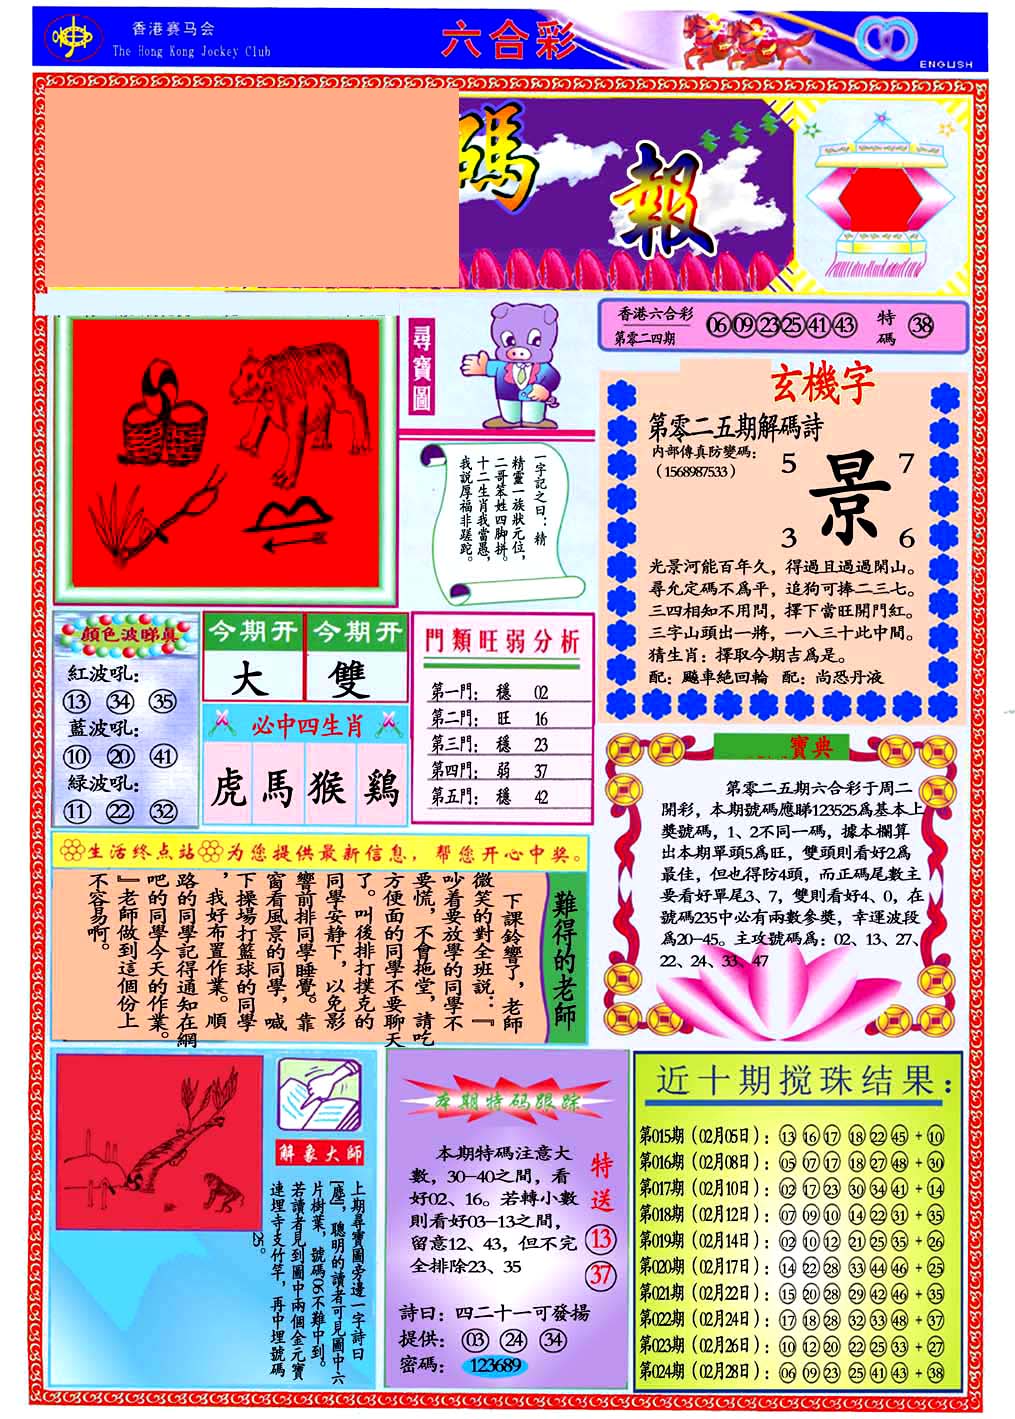 香港赛马会
The Hong Kong Jockey Club
六合彩
ENGLISH
碼報
尋寶圖
香港六合彩
第零二四期
06 09 23 25 41 43
特碼
38
玄機字
第零二五期解碼詩
内部傳真防變碼:
(1568987533)
5 7
景
3 6
光景河能百年久，得過且過過閑山。
尋允定碼不爲平，追狗可捧二三七。
三四相知不用問，擇下當旺開門紅。
三字山頭出一將，一八三十此中間。
猜生肖：擇取今期吉爲是。
配：飈車絕回輪 配：尚恐丹液
一字記之曰：精
精靈一族狀元位，
二哥笨姓四脚拼。
十二生肖我當愚，
我説厚福非蹉跎。
顔色波睇真
紅波吼:
13 34 35
藍波吼:
10 20 41
緑波吼:
11 22 32
今期开 今期开
大 雙
必中四生肖
虎 馬 猴 鷄
門類旺弱分析
第一門: 穩 02
第二門: 旺 16
第三門: 穩 23
第四門: 弱 37
第五門: 穩 42
寶典
第零二五期六合彩于周二
開彩，本期號碼應睇123525爲基本上
獎號碼，1、2不同一碼，據本欄算
出本期單頭5爲旺，雙頭則看好2爲
最佳，但也得防4頭，而正碼尾數主
要看好單尾3、7，雙則看好4、0，在
號碼235中必有兩數參獎，幸運波段
爲20-45。主攻號碼爲：02、13、27、
22、24、33、47
生活终点站 为您提供最新信息，帮您开心中奖。
難得的老師
下課鈴響了，老師
微笑的對全班説：『
吵着要放學的同學不
要慌，不會拖堂，請吃
方便面的同學不要聊天
了。叫後排打撲克的
同學安静下，以免影
響前排同學睡覺。靠
窗看風景的同學，喊
下操場打籃球的同學
，我好布置作業。順
路的同學記得通知在網
吧的同學今天的作業。
』老師做到這個份上
不容易啊。
解象大師
上期尋寶圖旁邊一字詩曰
[塵]，聰明的讀者可見圖中六
片樹葉，號碼06不難中到。
若讀者見到圖中兩個金元寶
連埋寺支竹竿，再中埋號碼
25。
本期特码跟踪
本期特碼注意大
數，30-40之間，看
好02、16。若轉小數
則看好03-13之間，
留意12、43，但不完
全排除23、35
特送
13
37
詩曰：四二十一可發揚
提供： 03 24 34
密碼： 123689
近十期搅珠结果：
第015期（02月05日）：13 16 17 18 22 45 + 10
第016期（02月08日）：05 07 17 18 27 48 + 30
第017期（02月10日）：02 17 23 30 34 41 + 14
第018期（02月12日）：07 09 10 14 22 31 + 35
第019期（02月14日）：02 10 12 21 25 35 + 26
第020期（02月17日）：14 22 28 33 44 46 + 25
第021期（02月22日）：15 20 28 29 42 46 + 35
第022期（02月24日）：17 18 28 32 33 48 + 37
第023期（02月26日）：10 12 20 22 25 33 + 27
第024期（02月28日）：06 09 23 25 41 43 + 38